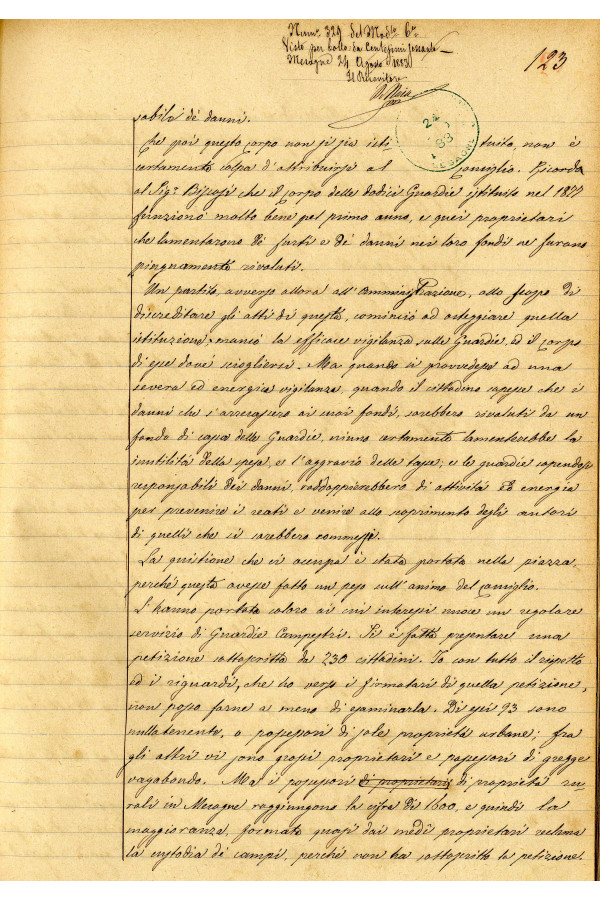 Num.º 329 del Mod.lo 6º
Visto per bollo da Centesimi sessanta
Mesagne 24 Agosto 1883
Il Ricevitore
123
24
83
MESAGNE
sabili dè danni.
Che poi questo corpo non si sia isti tuito, non è
certamente colpa d'attribuirsi al Consiglio. Ricorda
al Sig.r che il corpo delle dodici Guardie istituito nel 1877
funzionò molto bene pel primo anno, e quei proprietari
che lamentarono dè furti e dè danni nei loro fondi ne furono
pinguamente rivaluti.
Un partito, avverso allora all'Amministrazione, allo scopo di
discreditare gli atti di questa, cominciò ad osteggiare quella
istituzione, mancò la efficace vigilanza sulle Guardie, ed il Corpo
di esse dovè sciogliersi. Ma quando si provvedesse ad una
severa ed energica vigilanza, quando il cittadino sapesse che i
danni che s'arrecassero ai suoi fondi, sarebbero rivaluti da un
fondo di cassa delle Guardie, niuno certamente lamenterebbe la
inutilità della spesa, e l'aggravio delle tasse; e le guardie sapendosi
responsabili dei danni, raddoppierebbero di attività ed energia
per prevenire i reati e venire allo scoprimento degli autori
di quelli che si sarebbero commessi.
La quistione che ci occupa è stata portata nella piazza,
perchè questa avesse fatto un peso sull'animo del Consiglio.
L'hanno portata coloro ai cui interessi nuoce un regolare
servizio di Guardie Campestri. Si è fatta presentare una
petizione sottoscritta da 230 cittadini. Io con tutto il rispetto
ed i riguardi, che ho verso i firmatari di quella petizione,
non posso farne a meno di esaminarla. Di essi 93 sono
nullatenenti, o possessori di sole proprietà urbane; fra
gli altri vi sono grossi proprietari e possessori di gregge
vagabondo. Ma i possessori di proprietari di proprietà ru-
rali in Mesagne raggiungono la cifra di 1600, e quindi la
maggioranza, formata quasi dai medî proprietari reclama
la custodia di campi, perchè non ha sottoscritto la petizione.